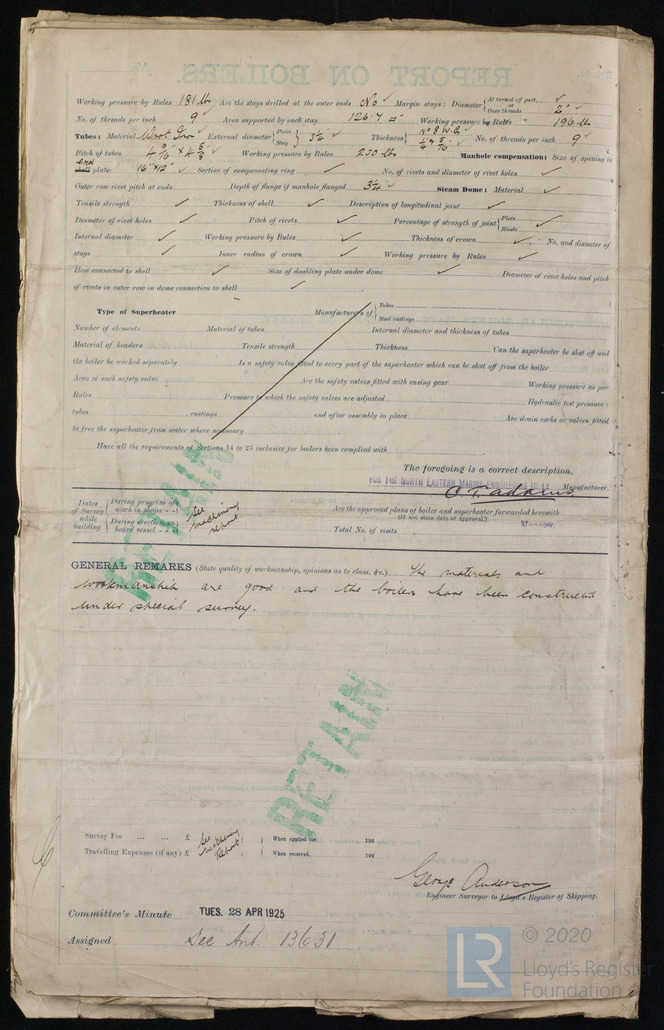 REPORT ON BOILERS.
Working pressure by Rules 181 lbs Are the stays drilled at the outer ends No Margin stays: Diameter { At turned off part, or Over threads 2"
No. of threads per inch 9 Area supported by each stay 126.7 Working pressure by Rules 196 lbs
Tubes: Material Wrot Iron External diameter { Plain Stay 3¼ Thickness { No 8 W.G. ¼" & 5/16 No. of threads per inch 9
Pitch of tubes 4 9/16 × 4 5/8 Working pressure by Rules 230 lbs Manhole compensation: Size of opening in
end
shell plate 16" × 12" Section of compensating ring No. of rivets and diameter of rivet holes
Outer row rivet pitch at ends Depth of flange if manhole flanged 3¼ Steam Dome: Material
Tensile strength Thickness of shell Description of longitudinal joint
Diameter of rivet holes Pitch of rivets Percentage of strength of joint { Plate Rivets
Internal diameter Working pressure by Rules Thickness of crown No. and diameter of
stays Inner radius of crown Working pressure by Rules
How connected to shell Size of doubling plate under dome Diameter of rivet holes and pitch
of rivets in outer row in dome connection to shell
Type of Superheater Manufacturers of { Tubes Steel castings
Number of elements Material of tubes Internal diameter and thickness of tubes
Material of headers Tensile strength Thickness Can the superheater be shut off and
the boiler be worked separately Is a safety valve fitted to every part of the superheater which can be shut off from the boiler
Area of each safety valve Are the safety valves fitted with easing gear Working pressure as per
Rules Pressure to which the safety valves are adjusted Hydraulic test pressure:
tubes , castings and after assembly in place Are drain cocks or valves fitted
to free the superheater from water where necessary
Have all the requirements of Sections 14 to 23 inclusive for boilers been complied with
RETAIN
The foregoing is a correct description,
FOR THE NORTH EASTERN MARINE ENGINEERING Co. Ld.
Manufacturer.
Manager.
Dates of Survey while building { During progress of work in shops - - During erection on board vessel - - - See machinery report
Are the approved plans of boiler and superheater forwarded herewith
(If not state date of approval.)
Total No. of visits
GENERAL REMARKS (State quality of workmanship, opinions as to class, &c.) The materials and
workmanship are good and the boilers have been constructed
under special survey.
RETAIN
Survey Fee ... ... £ See machinery report When applied for, 192
Travelling Expenses (if any) £ When received, 192
George Anderson
Engineer Surveyor to Lloyd's Register of Shipping.
Committee's Minute TUES. 28 APR 1925
Assigned See Ant. 13631
LR © 2020
Lloyd's Register
Foundation